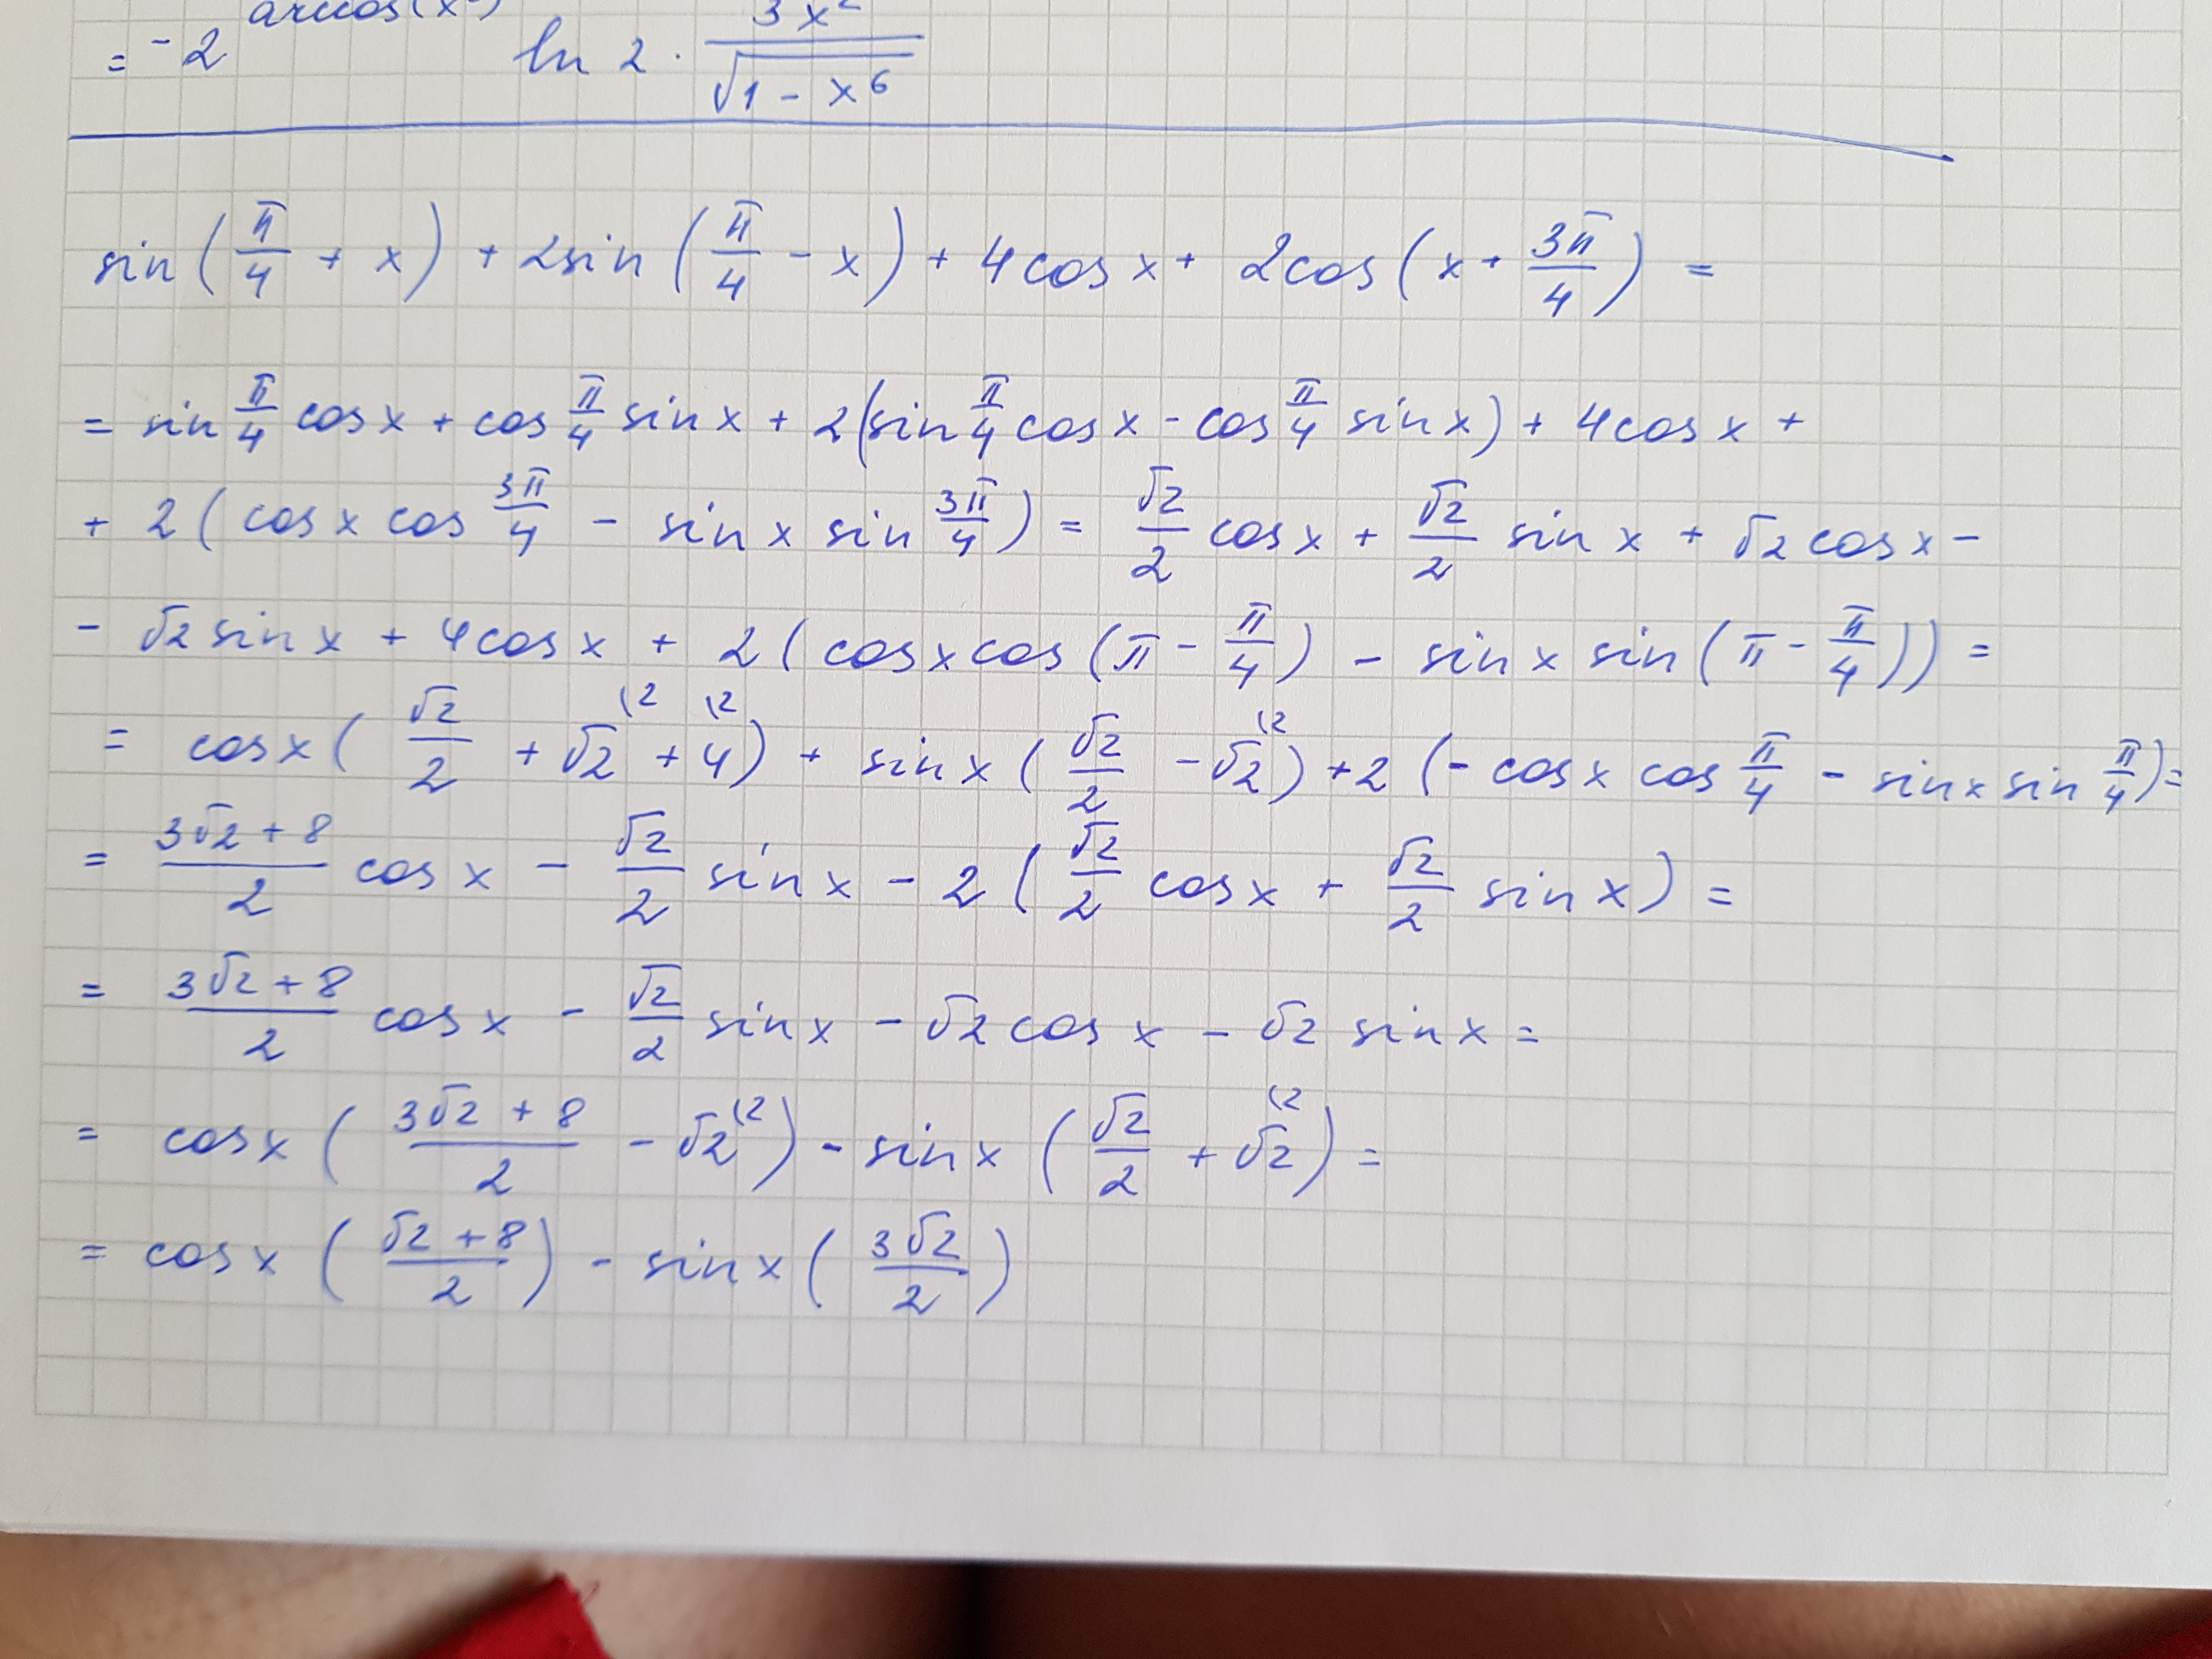 arccos(x³)
= -2 ln 2 · 3x² / √(1 - x⁶)
sin(π/4 + x) + 2sin(π/4 - x) + 4cos x + 2cos(x + 3π/4) =
= sin π/4 cos x + cos π/4 sin x + 2(sin π/4 cos x - cos π/4 sin x) + 4cos x +
+ 2(cos x cos 3π/4 - sin x sin 3π/4) = √2/2 cos x + √2/2 sin x + √2 cos x -
- √2 sin x + 4cos x + 2(cos x cos(π - π/4) - sin x sin(π - π/4)) =
= cos x(√2/2 + √2 (2 + 4 (2) + sin x(√2/2 - √2 (2) + 2(- cos x cos π/4 - sin x sin π/4) =
= (3√2 + 8)/2 cos x - √2/2 sin x - 2(√2/2 cos x + √2/2 sin x) =
= (3√2 + 8)/2 cos x - √2/2 sin x - √2 cos x - √2 sin x =
= cos x((3√2 + 8)/2 - √2 (2) - sin x(√2/2 + √2 (2) =
= cos x((√2 + 8)/2) - sin x(3√2/2)